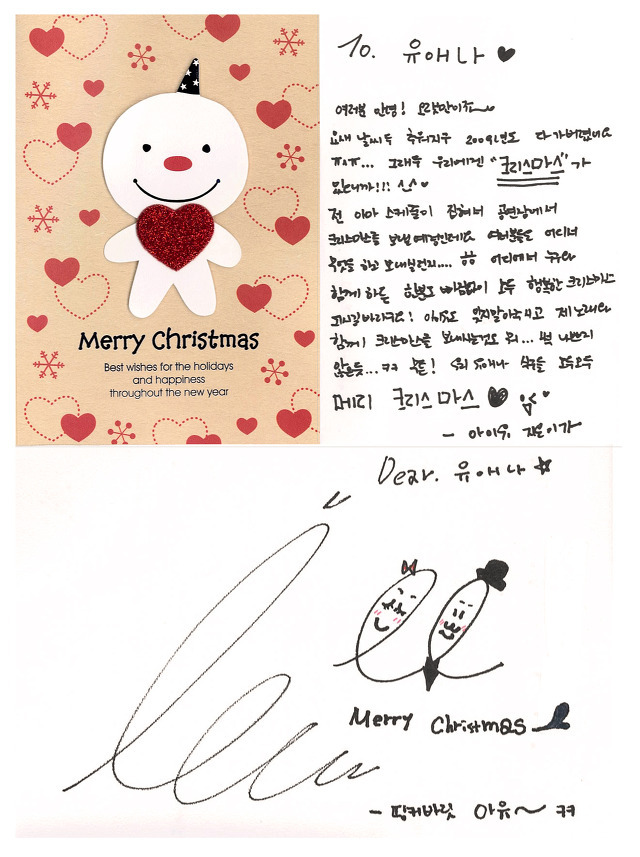 Merry Christmas
Best wishes for the holidays
and happiness
throughout the new year
To. 유애나 ♥
여러분 안녕! 오랜만이죠~
요새 날씨도 추워지구 2009년도 다 가버렸네요
ㅠㅅㅠ... 그래두 우리에겐 "크리스마스"가
있으니까!!! ^_^ ♥
전 아마 스케줄이 잡혀서 공연장에서
크리스마스를 보낼 예정인데요 여러분들은 어디서
무엇을 하고 보내실런지.... 어디에서 누구와
함께 하든 한분도 빠짐없이 모두 행복한 크리스마스
되시길 바라구요! 아이유도 잊지말아주시고 제 노래와
함께 크리스마스를 보내시는것도 뭐... 썩 나쁘지
않은듯...ㅋㅋ 우리 유애나 식구들 모두모두
메리 크리스마스 ♥
- 아이유, 지은이가
Dear. 유애나 ☆
Merry Christmas
- 핑커바릿 아유~ ㅋㅋ